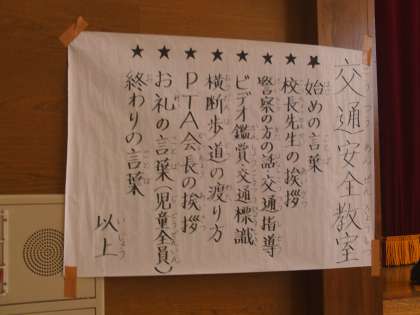 交通安全教室
★始めの言葉
★校長先生の挨拶
★警察の方の話・交通指導
★ビデオ鑑賞・交通標識
★横断歩道の渡り方
★PTA会長の挨拶
★お礼の言葉(児童全員)
★終わりの言葉
以上